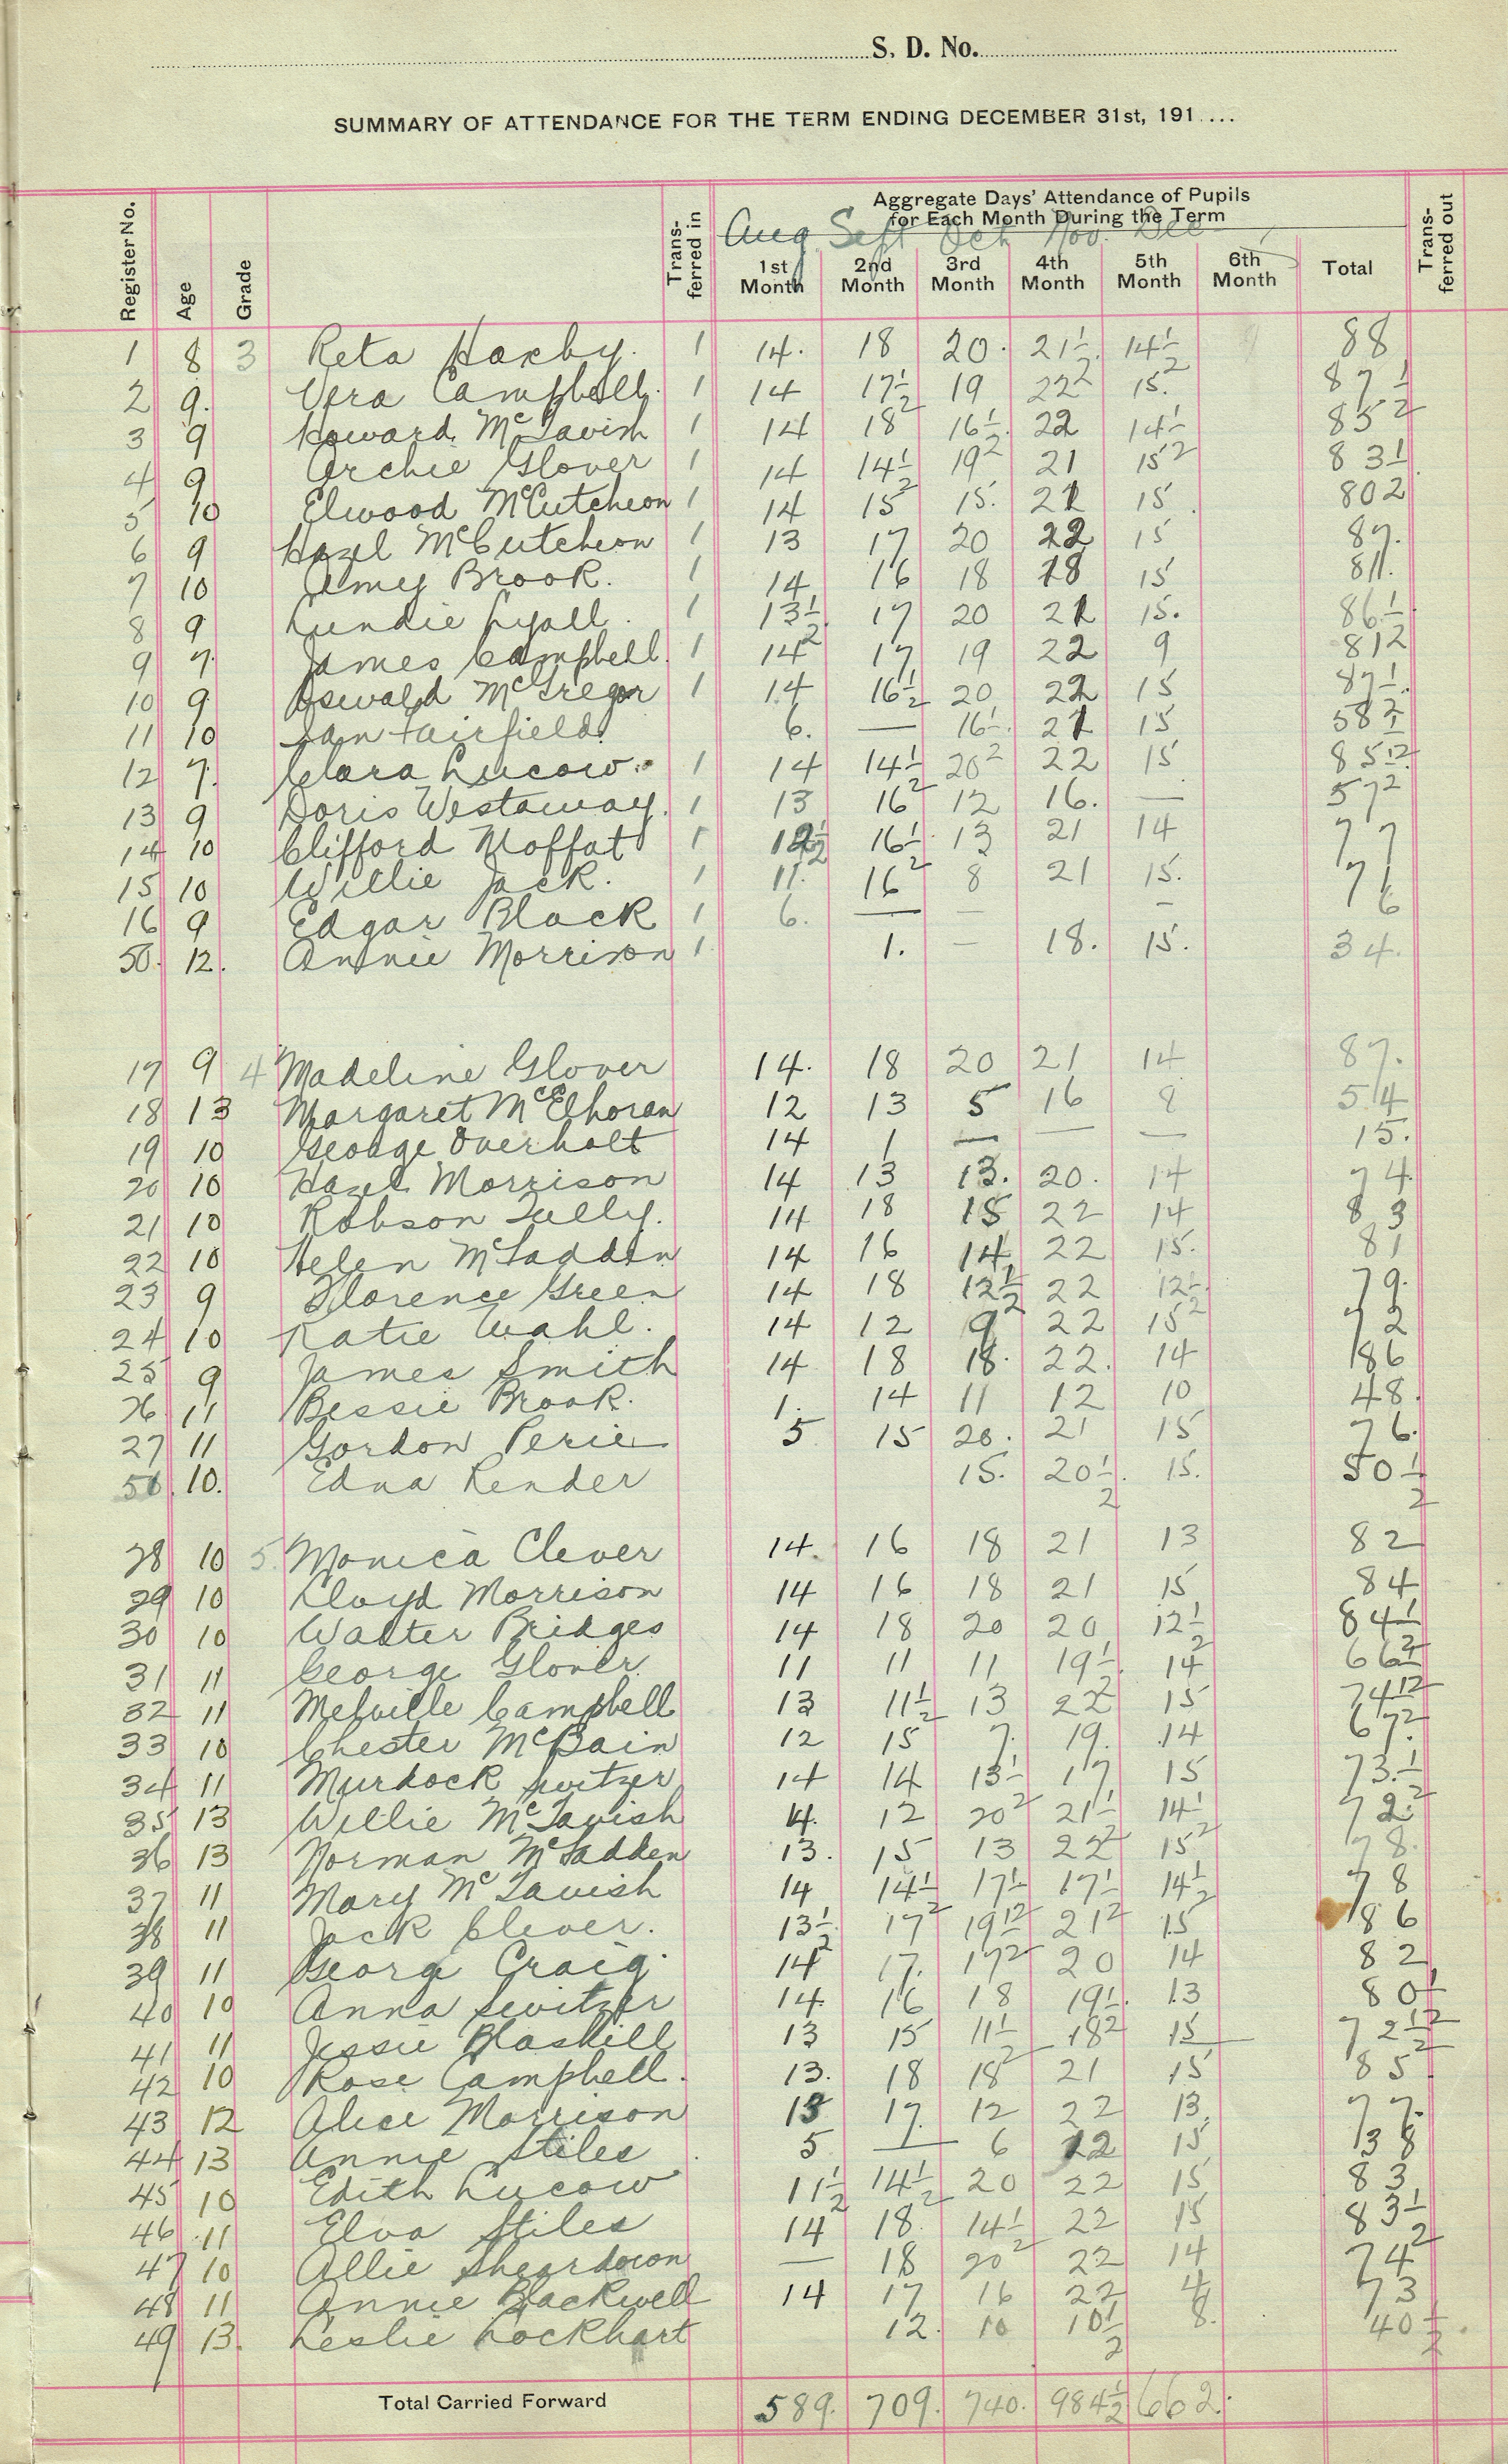 S. D. No.
SUMMARY OF ATTENDANCE FOR THE TERM ENDING DECEMBER 31st, 191....
Register No. Age Grade Trans-ferred in Aggregate Days' Attendance of Pupils for Each Month During the Term Trans-ferred out
Aug Sept Oct Nov. Dec
1st Month 2nd Month 3rd Month 4th Month 5th Month 6th Month Total
1 8 3 Reta Haxby. 1 14. 18 20. 21½ 14½ 88
2 9. Vera Campbell. 1 14 17½ 19 22 15. 87½
3 9 Howard McTavish 1 14 18 16½ 22 14½ 85
4 9 Archie Glover 1 14 14½ 19 21 15 83½
5 10 Elwood McCutcheon 1 14 15 15. 21 15 80
6 9 Hazel McCutcheon 1 13 17 20 22 15 87.
7 10 Amy Brook. 1 14 16 18 18 15 81.
8 9 Lundie Lyall. 1 13½ 17 20 21 15. 86½
9 7. James Campbell. 1 14 17 19 22 9 81
10 9 Oswald McGregor 1 14 16½ 20 22 15 87½
11 10 Ian Fairfield. 6. — 16½ 21 15 58½
12 7. Clara Lucow. 1 14 14½ 20 22 15 85½
13 9 Doris Westaway. 1 13 16 12 16. — 57
14 10 Clifford Moffat 1 12½ 16½ 13 21 14 77
15 10 Willie Jack. 1 11. 16 8 21 15. 71
16 9 Edgar Black 1 6. — — — 6
50. 12. Annie Morrison 1 1. — 18. 15. 34.
17 9 4 Madeline Glover 14. 18 20 21 14 87.
18 13 Margaret McElhoran 12 13 5 16 8 54
19 10 George Overholt 14 1 — — — 15.
20 10 Hazel Morrison 14 13 13. 20. 14 74
21 10 Robson Tully. 14 18 15 22 14 83
22 10 Helen McFadden 14 16 14 22 15. 81
23 9 Florence Green 14 18 12½ 22 12½ 79.
24 10 Katie Wahl. 14 12 9 22 15 72
25 9 James Smith 14 18 18. 22. 14 86
26 11 Bessie Brook. 1. 14 11 12 10 48.
27 11 Gordon Perie 5 15 20. 21 15 76.
51. 10. Edna Render 15. 20½. 15. 50½
28 10 5. Monica Clever 14. 16 18 21 13 82
29 10 Lloyd Morrison 14 16 18 21 15 84
30 10 Walter Bridges 14 18 20 20 12½ 84½
31 11 George Glover 11 11 11 19½. 14 66½
32 11 Melville Campbell 13 11½ 13 22 15 74½
33 10 Chester McBain 12 15 7. 19. 14 67.
34 11 Murdock Switzer 14 14 13½ 17 15 73½
35 13 Willie McTavish 4. 12 20 21½ 14½ 72.
36 13 Norman McFadden 13. 15 13 22 15 78.
37 11 Mary McTavish 14 14½ 17½ 17½ 14½ 78
38 11 Jack Clever. 13½. 17 19½ 21 15 86
39 11 George Craig. 14 17. 17 20 14 82
40 10 Anna Switzer 14. 16 18 19½. 13 80½
41 11 Jessie Blaskill 13 15 11½ 18 15 72½
42 10 Rose Campbell. 13. 18 18 21 15 85
43 12 Alice Morrison 13 17. 12 22 13. 77.
44 13 Annie Stiles 5 — 6 12 15 38
45 10 Edith Lucow 11½ 14½ 20 22 15 83
46 11 Elva Stiles 14 18. 14½ 22 15 83½
47 10 Allie Sheardown — 18 20 22 14 74
48 11 Annie Blackwell 14 17 16 22 4 73
49 13. Leslie Lockhart 12. 10 10½ 8. 40½.
Total Carried Forward 589. 709. 740. 984½ 662.